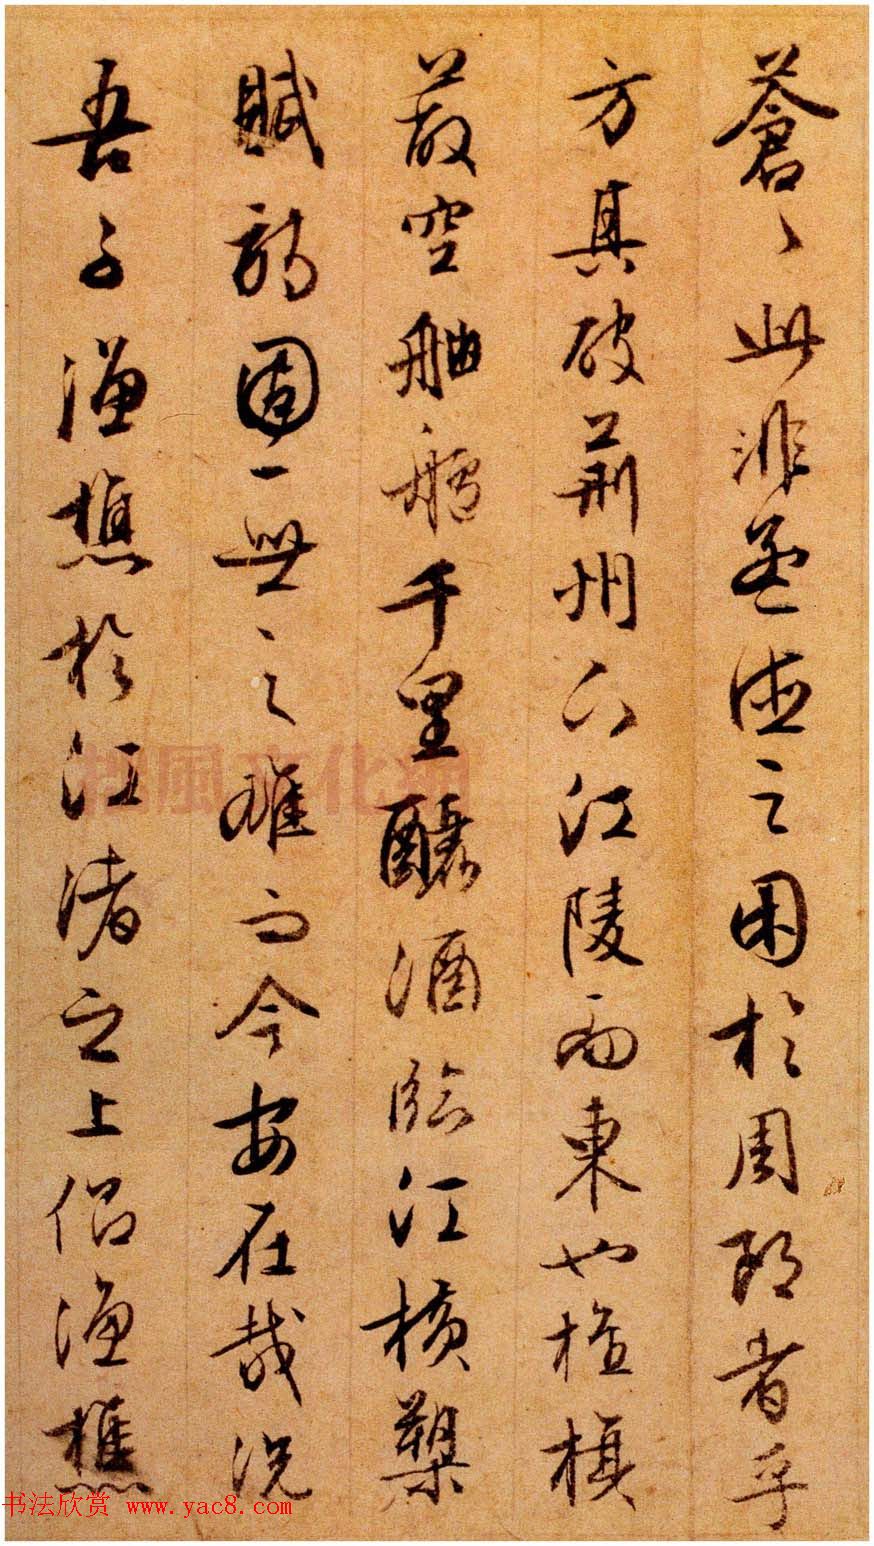 蒼〻此非孟德之困於周郎者乎
方其破荊州下江陵而東也旌旗
蔽空舳艫千里釃酒臨江橫槊
賦詩固一世之雄而今安在哉況
吾子漁樵於江渚之上侶漁樵
书法欣赏 www.yac8.com